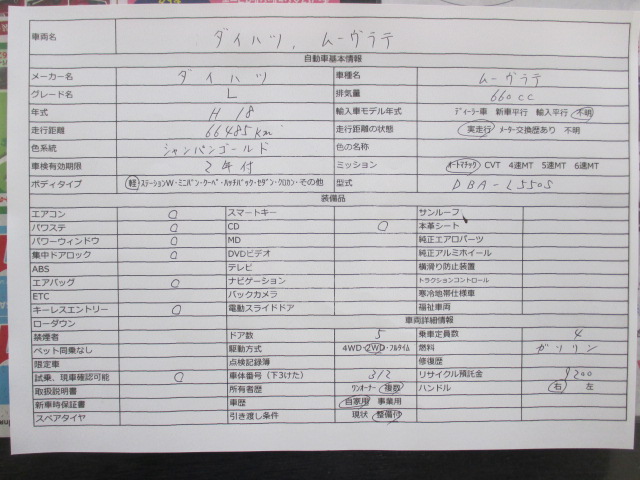 車両名 ダイハツ、ムーヴラテ
自動車基本情報
メーカー名 ダイハツ 車種名 ムーヴラテ
グレード名 L 排気量 660cc
年式 H18 輸入車モデル年式 ディーラー車 新車平行 輸入平行 不明
走行距離 66485km 走行距離の状態 実走行 メーター交換歴あり 不明
色系統 シャンパンゴールド 色の名称
車検有効期限 2年付 ミッション オートマチック CVT 4速MT 5速MT 6速MT
ボディタイプ 軽・ステーションW・ミニバン・クーペ・ハッチバック・セダン・クロカン・その他 型式 DBA-L550S
装備品
エアコン ○ スマートキー サンルーフ
パワステ ○ CD ○ 本革シート
パワーウィンドウ ○ MD 純正エアロパーツ
集中ドアロック ○ DVDビデオ 純正アルミホイール
ABS テレビ 横滑り防止装置
エアバッグ ○ ナビゲーション トラクションコントロール
ETC バックカメラ 寒冷地帯仕様車
キーレスエントリー ○ 電動スライドドア 福祉車両
ローダウン 車両詳細情報
禁煙者 ドア数 5 乗車定員数 4
ペット同乗なし 駆動方式 4WD・2WD・フルタイム 燃料 ガソリン
限定車 点検記録簿 修復歴
試乗、現車確認可能 ○ 車体番号（下3けた） 312 リサイクル預託金
取扱説明書 所有者歴 ワンオーナー 複数 ハンドル 右 左
新車時保証書 車歴 自家用 事業用
スペアタイヤ 引き渡し条件 現状 整備付